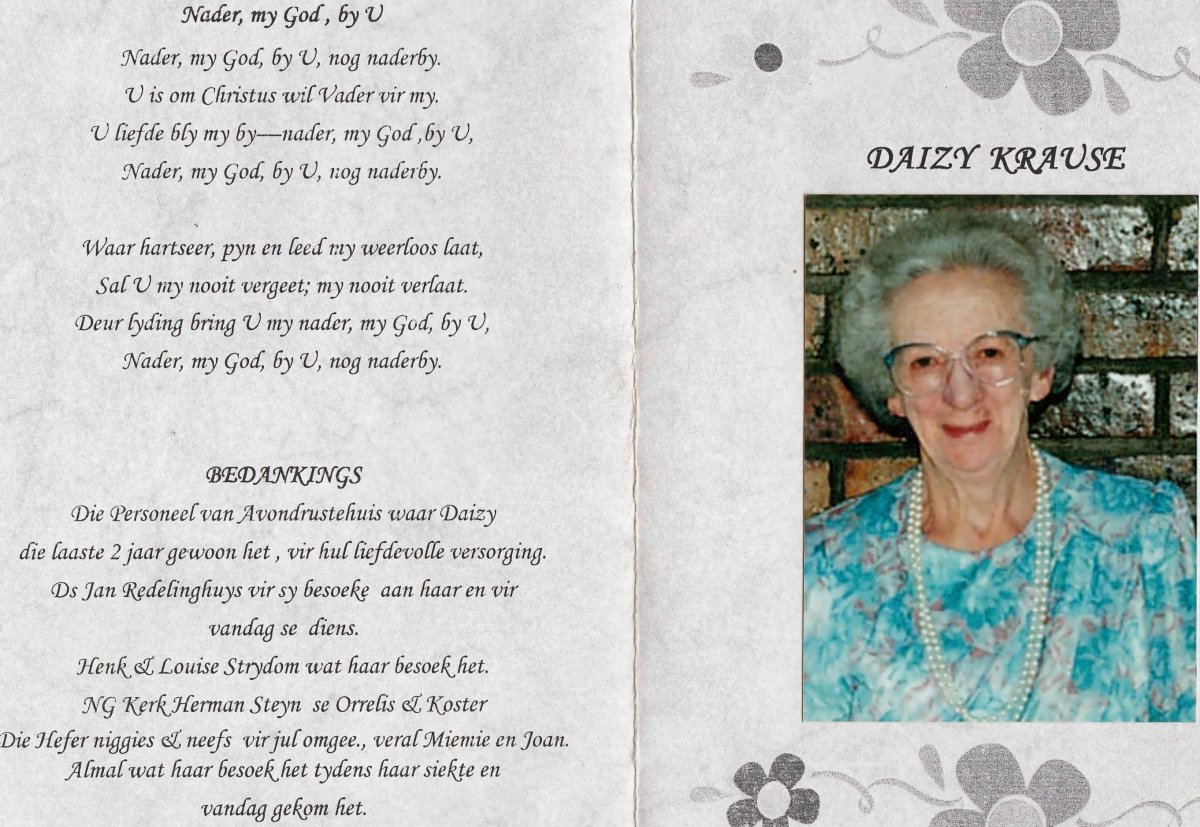 Nader, my God , by U
Nader, my God, by U, nog naderby.
U is om Christus wil Vader vir my.
U liefde bly my by—nader, my God ,by U,
Nader, my God, by U, nog naderby.
Waar hartseer, pyn en leed my weerloos laat,
Sal U my nooit vergeet; my nooit verlaat.
Deur lyding bring U my nader, my God, by U,
Nader, my God, by U, nog naderby.
BEDANKINGS
Die Personeel van Avondrustehuis waar Daizy
die laaste 2 jaar gewoon het , vir hul liefdevolle versorging.
Ds Jan Redelinghuys vir sy besoeke aan haar en vir
vandag se diens.
Henk & Louise Strydom wat haar besoek het.
NG Kerk Herman Steyn se Orrelis & Koster
Die Hefer niggies & neefs vir jul omgee., veral Miemie en Joan.
Almal wat haar besoek het tydens haar siekte en
vandag gekom het.
DAIZY KRAUSE